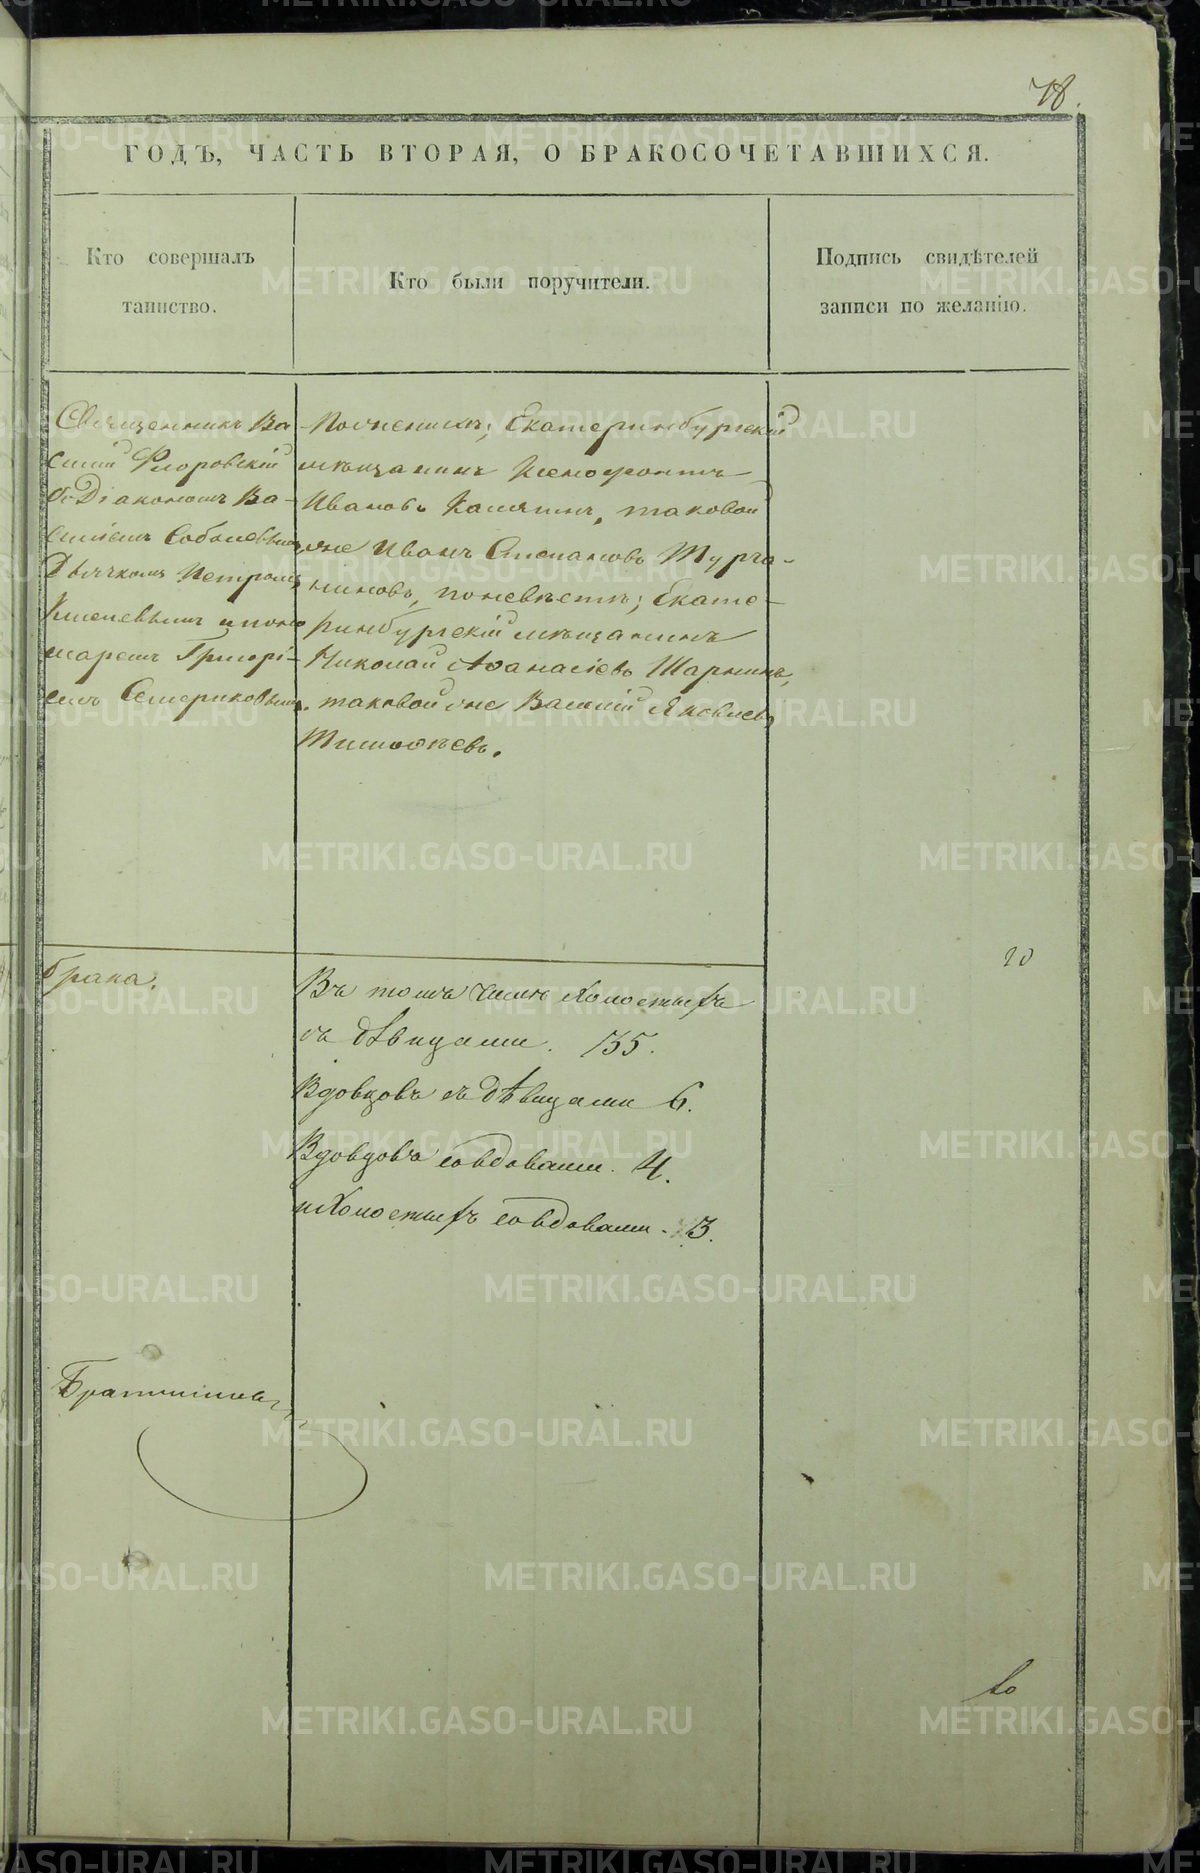 78.
ГОДЪ, ЧАСТЬ ВТОРАЯ, О БРАКОСОЧЕТАВШИХСЯ.
Кто совершалъ
таинство.
Кто были поручители.
Подпись свидѣтелей
записи по желанію.
Священникъ Ва
силій Флоровскій
съ Діакономъ Ва-
силіемъ Соболевымъ
Дьячкомъ Петромъ
и поно
маремъ Григорі-
емъ Семериковымъ.
По женихѣ; Екатеринбургскій
мѣщанинъ Ксенофонтъ
Ивановъ Калягинъ, таковой
же Иванъ Степановъ Турча-
ниновъ, по невѣстѣ; Екате-
ринбургскій мѣщанинъ
Николай Аѳанасіевъ
таковой же Василій Яковлевъ
Тимоѳѣевъ.
брака.
Въ томъ числѣ Холостыхъ
съ дѣвицами. 135.
Вдовцовъ съ дѣвицами 6.
Вдовцовъ со вдовами. 4.
и Холостыхъ со вдовами. 3.
20
METRIKI.GASO-URAL.RU